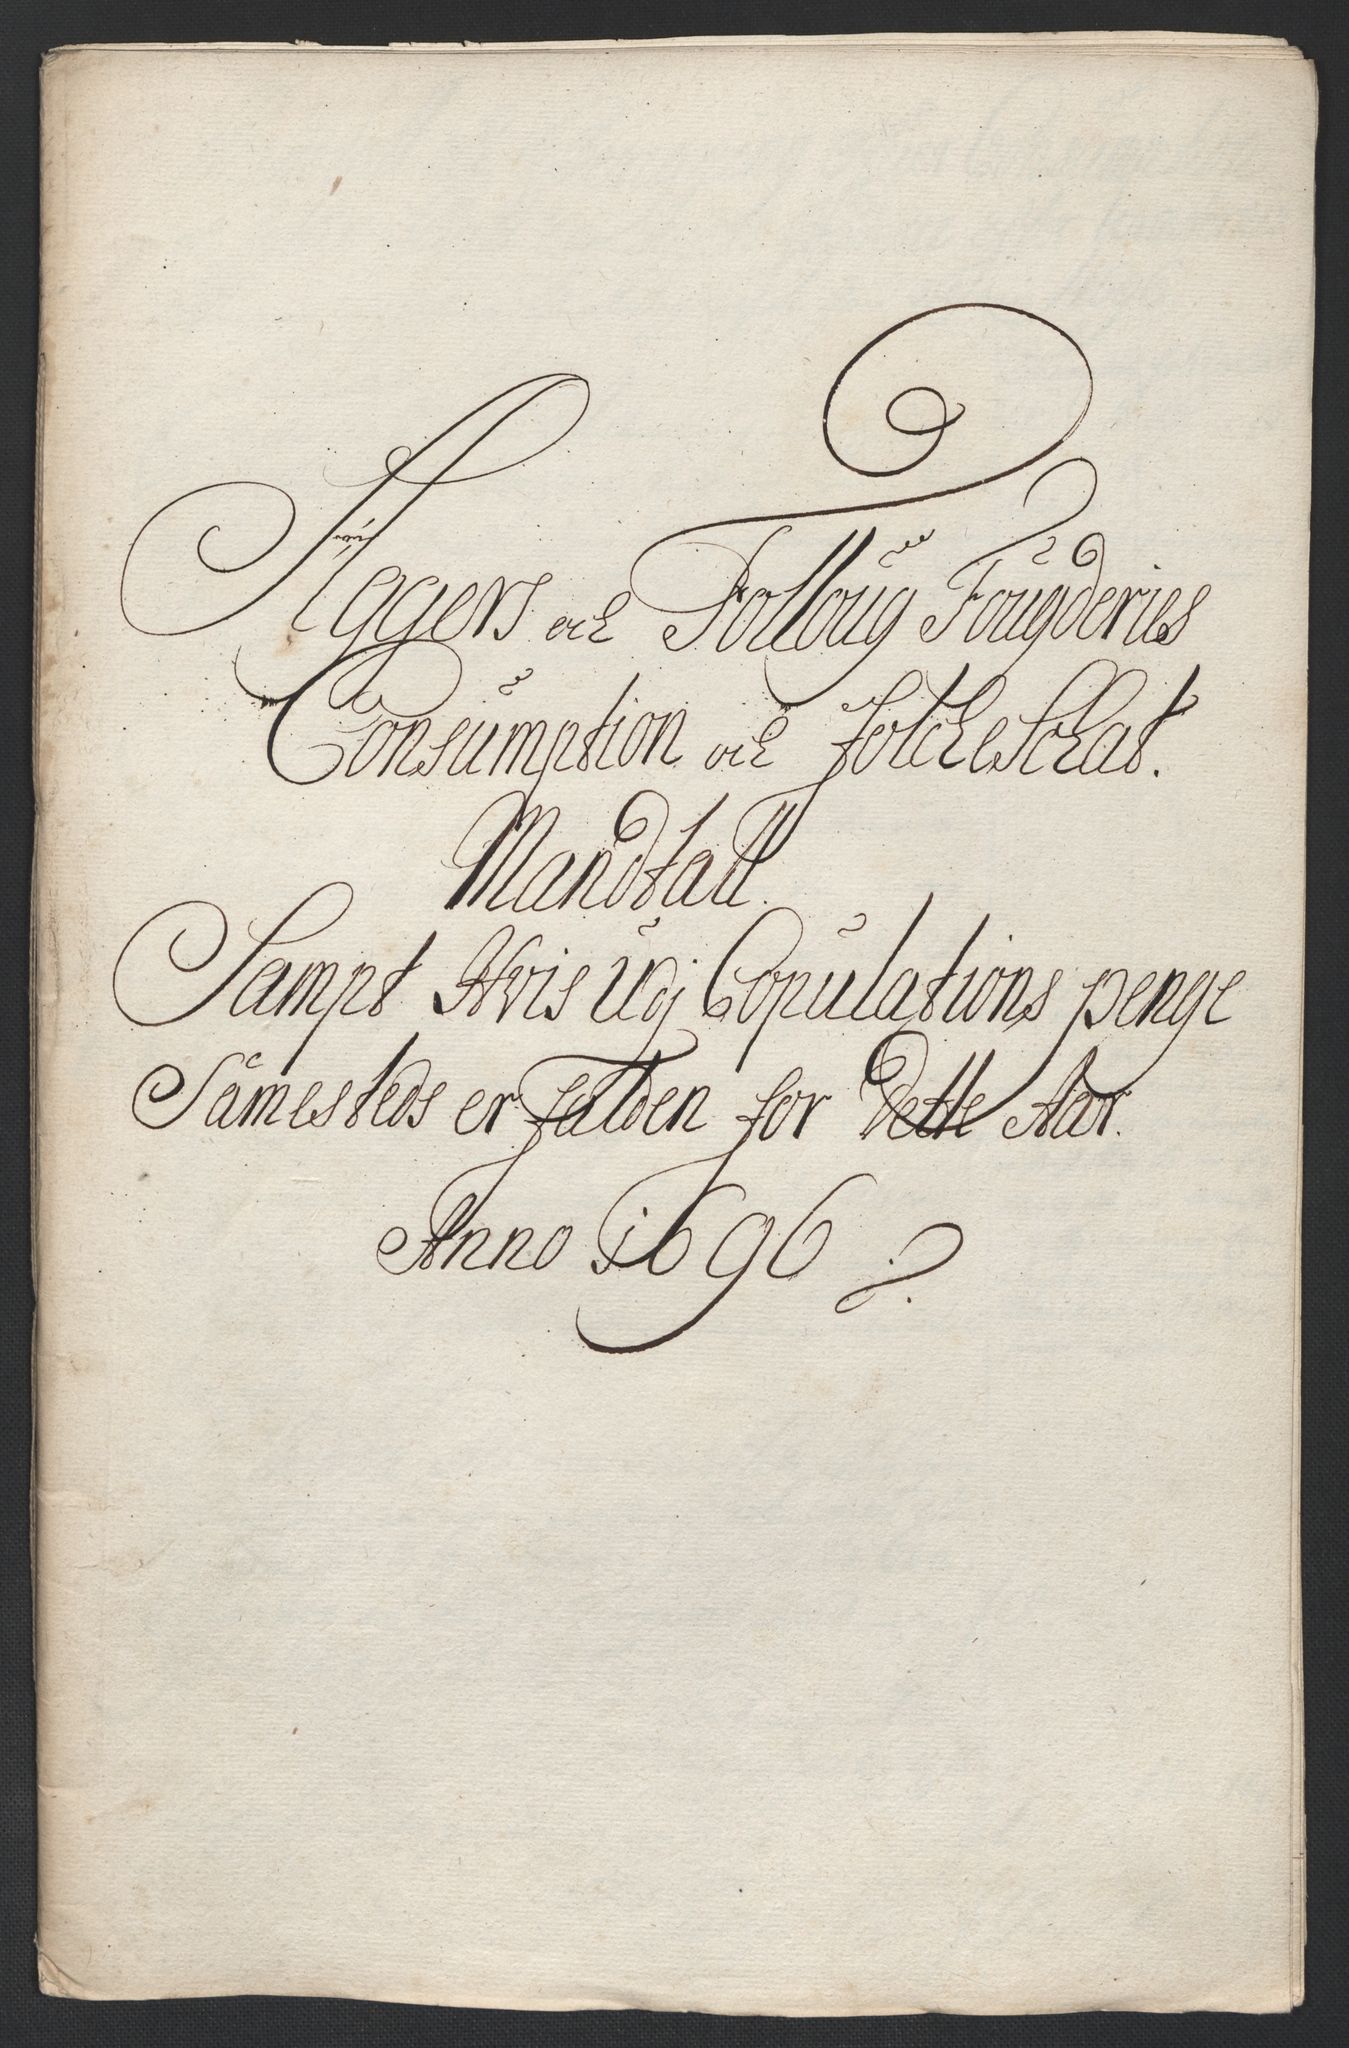 Aggers och Folloug Fougderies
Consumption och folcheschat.
Mandtall.
Sampt Hvis Udj Copulations penge
Sammesteds er falden for dette Aar.
Anno 1696